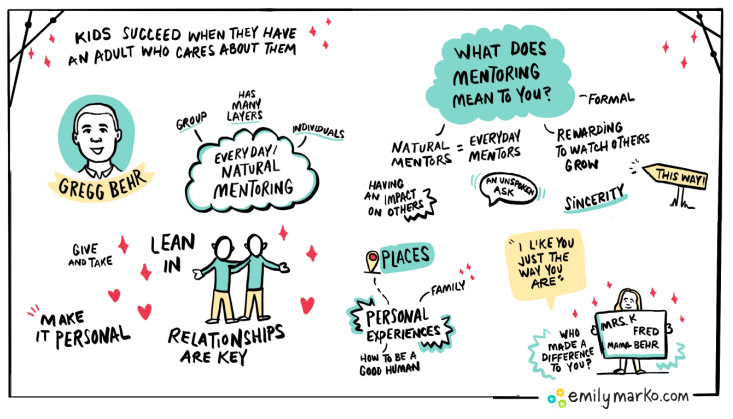 KIDS SUCCEED WHEN THEY HAVE
AN ADULT WHO CARES ABOUT THEM
GREGG BEHR
GROUP
HAS
MANY
LAYERS
INDIVIDUALS
EVERYDAY/
NATURAL
MENTORING
GIVE
AND TAKE
LEAN
IN
MAKE
IT PERSONAL
RELATIONSHIPS
ARE KEY
WHAT DOES
MENTORING
MEAN TO YOU?
FORMAL
NATURAL
MENTORS
=
EVERYDAY
MENTORS
REWARDING
TO WATCH OTHERS
GROW
HAVING
AN IMPACT
ON OTHERS
AN UNSPOKEN
ASK
SINCERITY
THIS WAY!
PLACES
FAMILY
PERSONAL
EXPERIENCES
HOW TO BE A
GOOD HUMAN
"I LIKE YOU
JUST THE
WAY YOU
ARE"
WHO
MADE A
DIFFERENCE
TO YOU?
MRS. K
FRED
MAMA BEHR
emilymarko.com